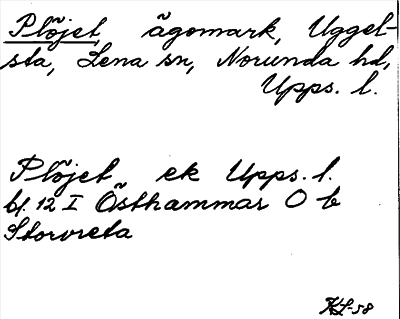 Plöjet, ägomark, Uggel-
sta, Lena sn, Norunda hd,
Upps. l.
Plöjet ek Upps. l.
bl. 12 I Östhammar O b
Storvreta
KL-58